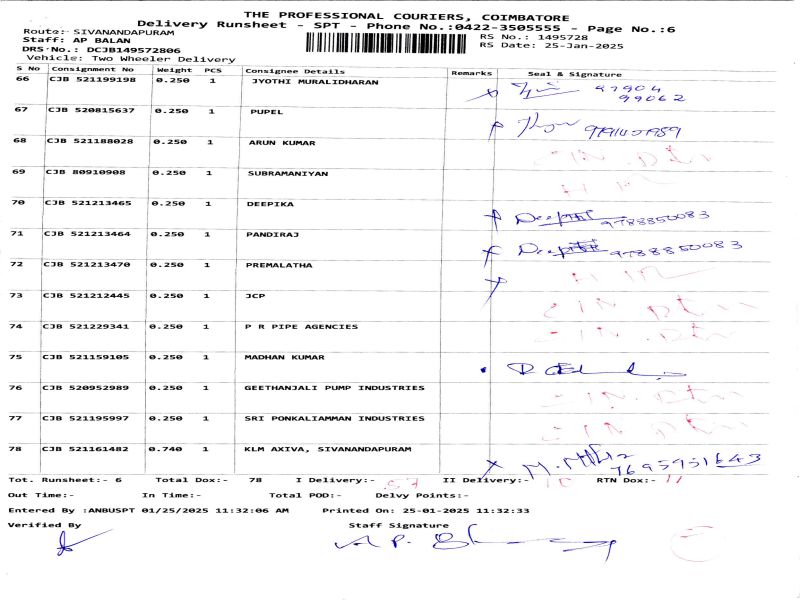 THE PROFESSIONAL COURIERS, COIMBATORE
Delivery Runsheet - SPT - Phone No.:0422-3505555 - Page No.:6
Route:- SIVANANDAPURAM
Staff: AP BALAN
RS No.: 1495728
DRS-No.: DCJB149572806
RS Date: 25-Jan-2025
Vehicle: Two Wheeler Delivery
S No Consignment No Weight PCS Consignee Details Remarks Seal & Signature
66 CJB 521199198 0.250 1 JYOTHI MURALIDHARAN 97904
99062
67 CJB 520815637 0.250 1 PUPEL
68 CJB 521188028 0.250 1 ARUN KUMAR
69 CJB 80910908 0.250 1 SUBRAMANIYAN
70 CJB 521213465 0.250 1 DEEPIKA Deepika 9788850083
71 CJB 521213464 0.250 1 PANDIRAJ Deepika 9788850083
72 CJB 521213470 0.250 1 PREMALATHA
73 CJB 521212445 0.250 1 JCP
74 CJB 521229341 0.250 1 P R PIPE AGENCIES
75 CJB 521159105 0.250 1 MADHAN KUMAR
76 CJB 520952989 0.250 1 GEETHANJALI PUMP INDUSTRIES
77 CJB 521195997 0.250 1 SRI PONKALIAMMAN INDUSTRIES
78 CJB 521161482 0.740 1 KLM AXIVA, SIVANANDAPURAM 7695951643
Tot. Runsheet:- 6 Total Dox:- 78 I Delivery:- 57 II Delivery:- 10 RTN Dox:- 11
Out Time:- In Time:- Total POD:- Delvy Points:-
Entered By :ANBUSPT 01/25/2025 11:32:06 AM Printed On: 25-01-2025 11:32:33
Verified By Staff Signature